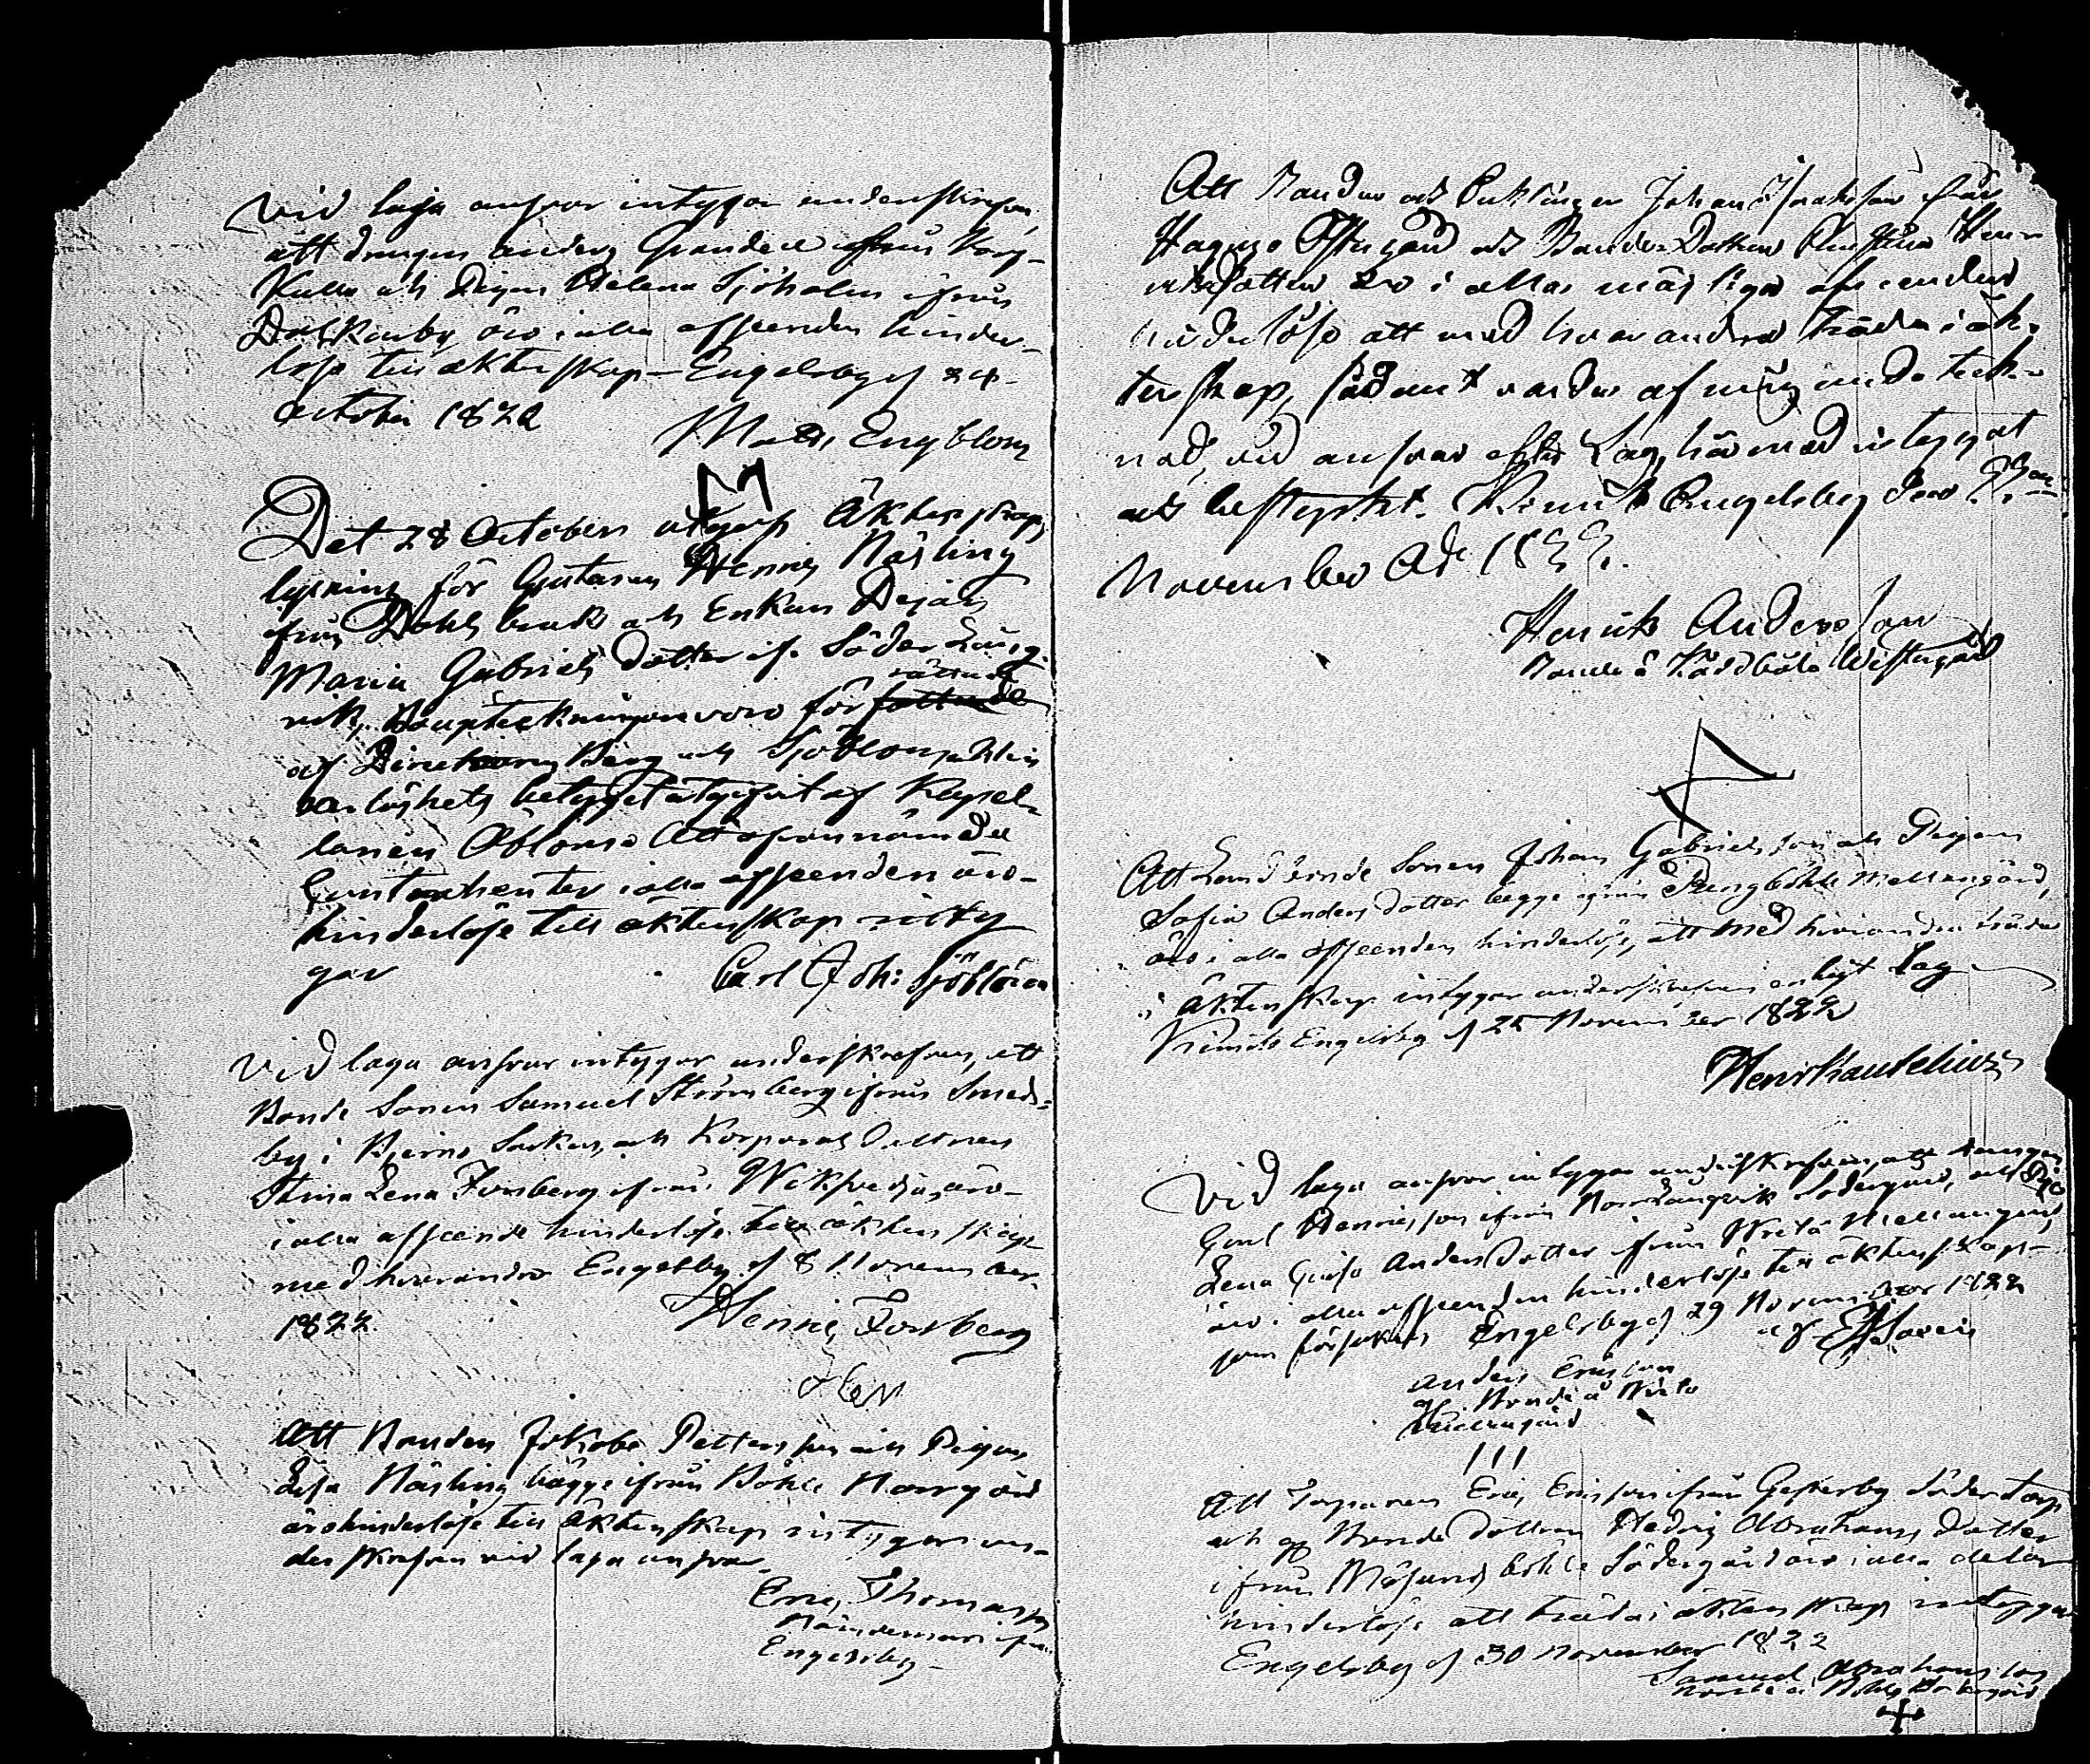 Vid laga ansvar intygar underskrefven
att drengen Anders Grandell ifrån Korg-
Kulla och Pigan Helena Sjöholm ifrån
Dalkarby äro i alla afseenden hinder-
löse till äktenskap Engelsby d 24
October 1822
Matts Engblom
M
Det 28 October utgafs Äktenskaps
lysning för Gjutaren Hennric Nösling
ifrån Dahls bruk och Enkan Pigan
Maria Gabriels dotter if. Söder Lång-
vik, Kaupteckningen voro för rättade
af Directeuren Berg och Sjöblom
betyget utgifvit af Kapel-
lanen Ablom Att ofvannämnde
Contrahenter i alla afseenden äro
hinderlöse till äktenskap inty
gar
Carl Joh: Sjöblom
Vid laga ansvar intygar underskrefven, att
Bonde Sonen Samuel Strömberg ifrån Smeds-
by i Bjerno Socken, och Korporals dottren
Stina Lena Forsberg ifrån Wiksvedja, äro
i alla afseende hinderlöse till äktenskap
med hvarandra Engelsby d 8 November
1822
Hennric Forsberg
Att Bonden Jakob Pettersson och Pigan
Lisa Nösling bägge ifrån Böhle Norrgård
äro hinderlöse till Äktenskap intygar un-
derskrefven vid laga ansvar
Eric Thomasson
Nämndeman ifrån
Engelsby
Att Bonden och Enklingen Johan Israelsson från
Östergård och Bonde Dottren Christina Hen-
ricsdotter äro i allas möjliga afseenden
hinderlöse att med hvarandra träda i äk-
tenskap, sådant varder af mig underteck-
nad, vid ansvar efter Lag, härmed intygat
och bestyrkt. Kimito Engelsby den
November Ao 1822.
Henrik Andersson
Bonde å Wästergård
Att Landbonde Sonen Johan Gabrielsson och Pigan
Sofia Anders dotter bägge ifrån Pungböhle Mellangård,
äro i alla afseenden hinderlöse, att med hvarandra träda
i Äktenskap intygar underskrefven enligt Lag
Kimito Engelsby d 25 November 1822
Vid laga ansvar intygar underskrefven, att drengen
Gust Hennricsson ifrån Norrlångvik Södergård, och Pigan
Lena Greta Anders dotter ifrån Wreta Mellangård,
äro i alla afseenden hinderlöse till äktenskap
som försäkras Engelsby d 29 November 1822
Anders Ericsson
Bonde å Wreta
Mellangård
Att Torparen Eric Ericsson ifrån Gesterby Södertorp
och Bonde Dottren Hedvig Abrahams Dotter
ifrån böhle Södergård äro i alla delar
hinderlöse att träda i äktenskap intygar
Engelsby d 30 November 1822
Samuel Abrahamsson